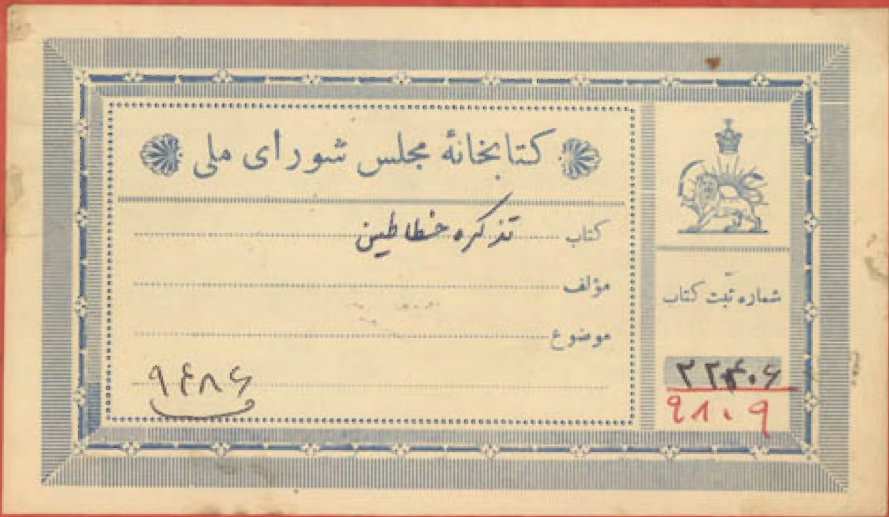 کتابخانهٔ مجلس شورای ملی
کتاب تذکره خطاطین
مؤلف
موضوع
۹۴۸۶
شماره ثبت کتاب
۲۲۴۰۶
۹۸۰۹